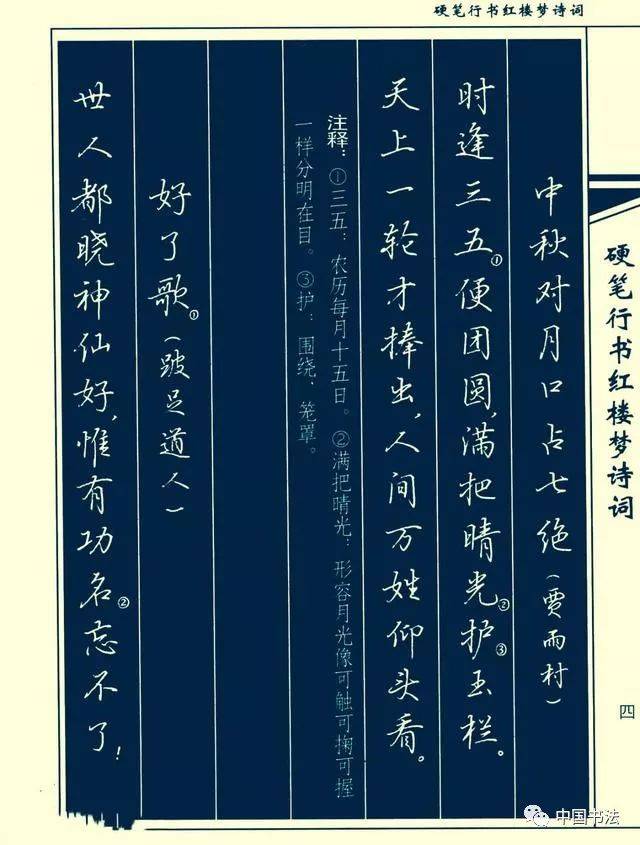 硬笔行书红楼梦诗词
硬笔行书红楼梦诗词
四
中秋对月口占七绝(贾雨村)
时逢三五①便团圆,满把晴光②护③玉栏。
天上一轮才捧出,人间万姓仰头看。
注释:①三五:农历每月十五日。②满把晴光:形容月光像可触可掬可握
一样分明在目。③护:围绕、笼罩。
好了歌①(跛足道人)
世人都晓神仙好,惟有功名②忘不了!
中国书法